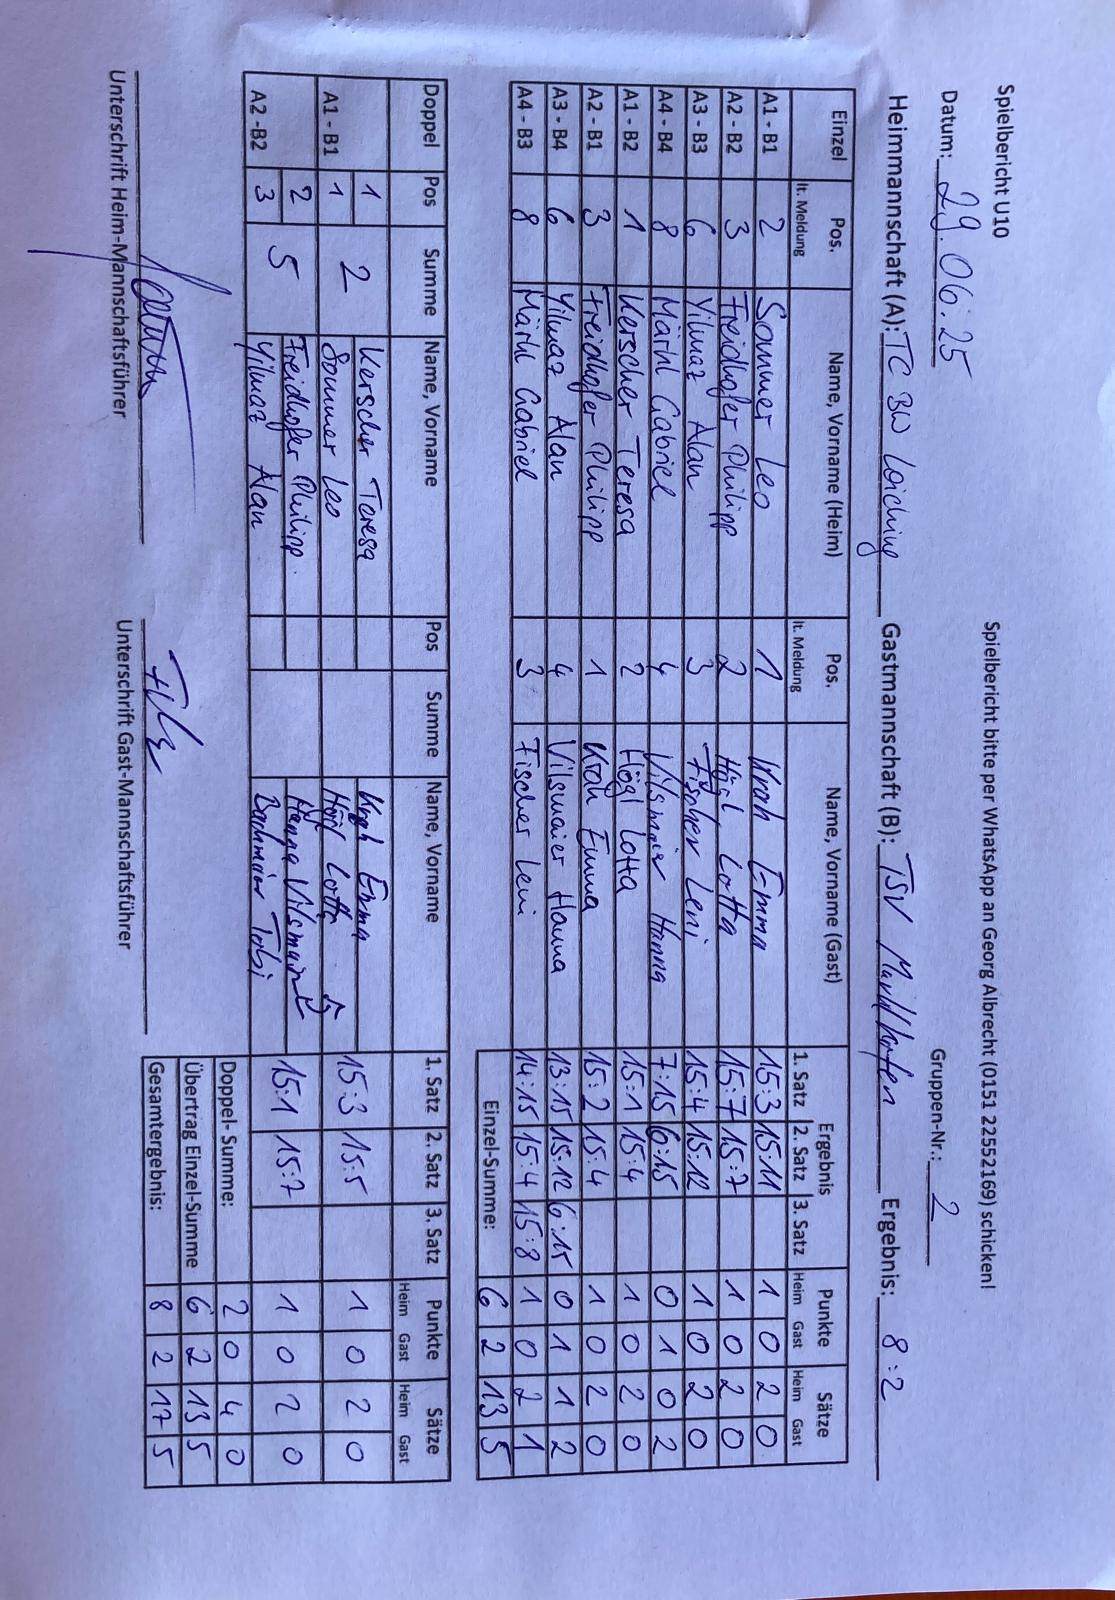 Spielbericht U10 Spielbericht bitte per WhatsApp an Georg Albrecht (0151 22552169) schicken!
Datum: 29.06.25 Gruppen-Nr.: 2
Heimmannschaft (A): TC BW Loiching Gastmannschaft (B): TSV Marklkofen Ergebnis: 8:2
Einzel Pos. lt. Meldung Name, Vorname (Heim) Pos. lt. Meldung Name, Vorname (Gast) Ergebnis Punkte Sätze
1. Satz 2. Satz 3. Satz Heim Gast Heim Gast
A1 - B1 2 Sommer Leo 1 Krah Emma 15:3 15:11 1 0 2 0
A2 - B2 3 Freidhofer Philipp 2 Högl Lotta 15:7 15:7 1 0 2 0
A3 - B3 6 Yilmaz Alan 3 Fischer Leni 15:4 15:12 1 0 2 0
A4 - B4 8 Märkl Gabriel 4 Vilsmaier Hanna 7:15 6:15 0 1 0 2
A1 - B2 1 Kerscher Teresa 2 Högl Lotta 15:1 15:4 1 0 2 0
A2 - B1 3 Freidhofer Philipp 1 Krah Emma 15:2 15:4 1 0 2 0
A3 - B4 6 Yilmaz Alan 4 Vilsmaier Hanna 13:15 15:12 6:15 0 1 1 2
A4 - B3 8 Märkl Gabriel 3 Fischer Leni 14:15 15:4 15:8 1 0 2 1
Einzel-Summe: 6 2 13 5
Doppel Pos Summe Name, Vorname Pos Summe Name, Vorname 1. Satz 2. Satz 3. Satz Punkte Sätze
Heim Gast Heim Gast
1 Kerscher Teresa Krah Emma
A1 - B1 1 2 Sommer Leo Högl Lotta 15:3 15:5 1 0 2 0
2 Freidhofer Philipp Hanna Vilsmaier
A2 -B2 3 5 Yilmaz Alan Bachmaier Tobi 15:1 15:7 1 0 2 0
Doppel- Summe: 2 0 4 0
Übertrag Einzel-Summe 6 2 13 5
Gesamtergebnis: 8 2 17 5
Unterschrift Heim-Mannschaftsführer Unterschrift Gast-Mannschaftsführer